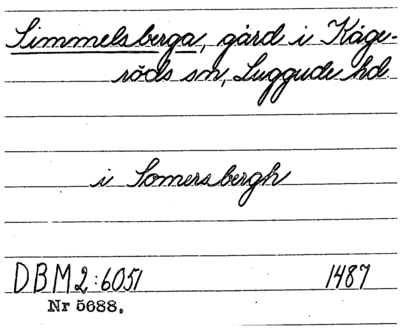 Simmelsberga, gård i Kåge-
röds sn, Luggude hd
i Somersbergh
DBM 2:6051 1487
Nr 5688.